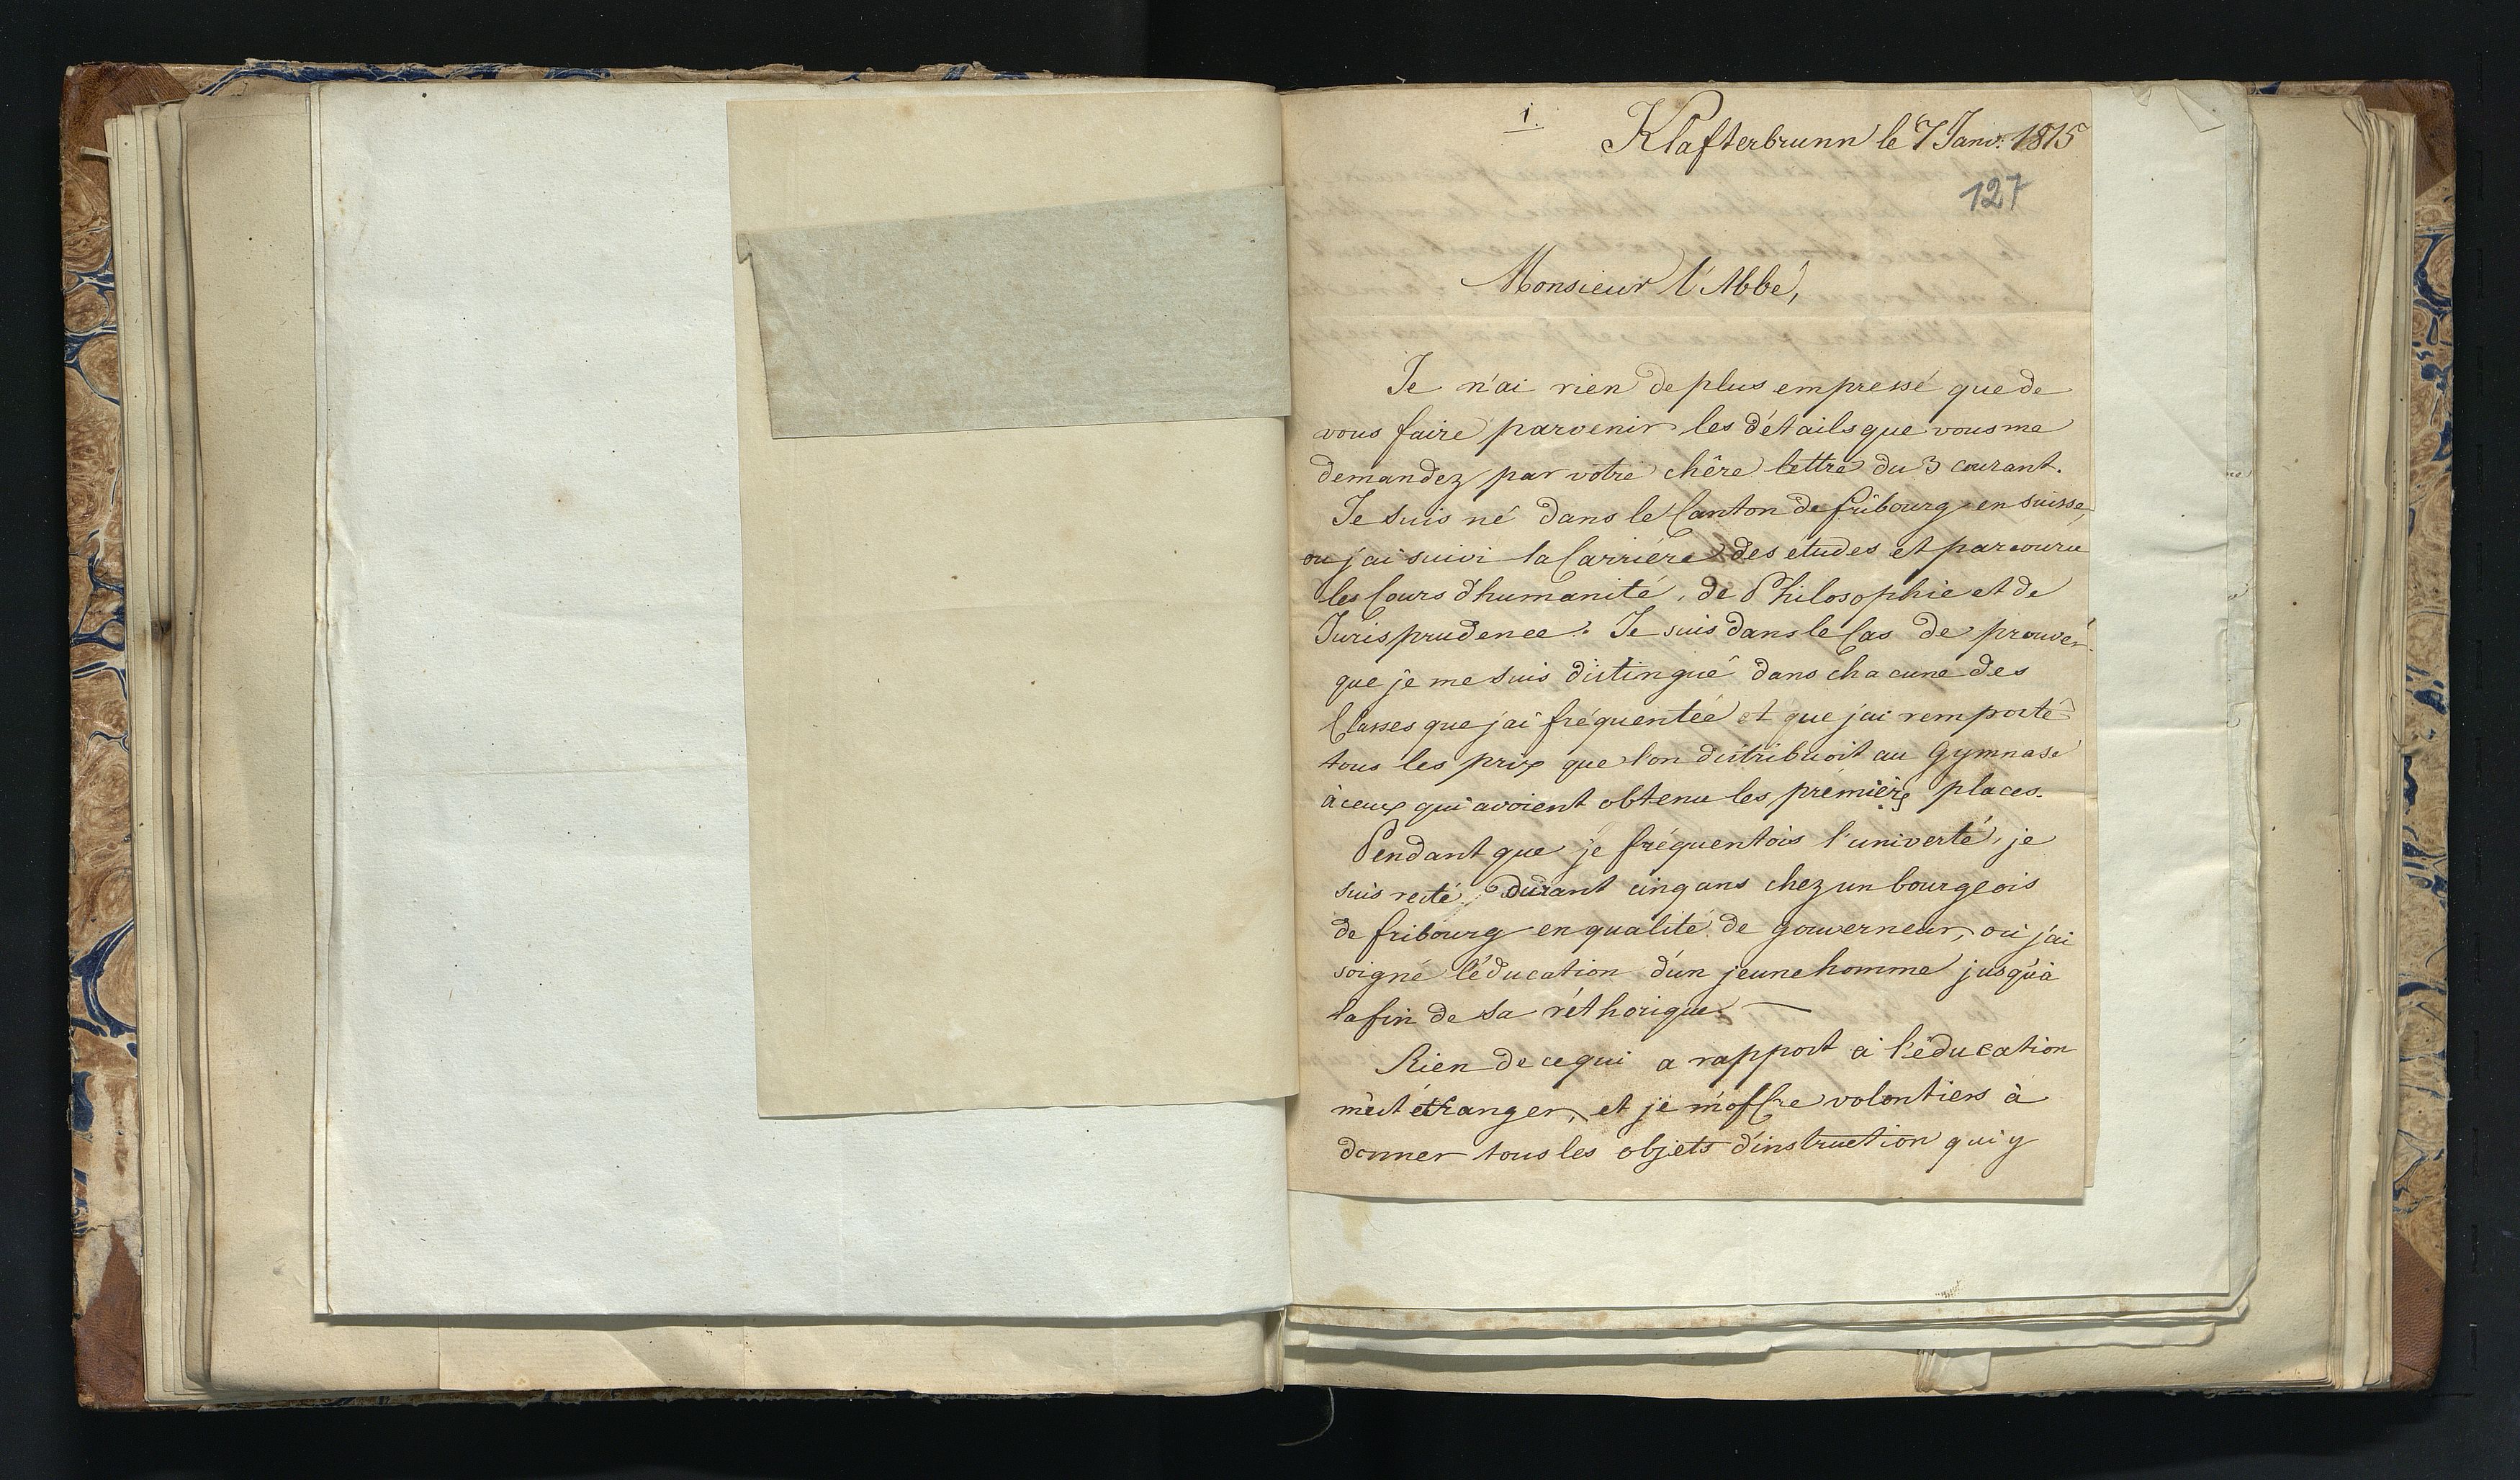 1.
Klafterbrunn le 7 Janv. 1815
127
Monsieur l'Abbé,
Je n'ai rien de plus empressé que de
vous faire parvenir les détails que vous me
demandez par votre chêre lettre du 3 courant.
Je suis né dans le Canton de fribourg en suisse,
ou j'ai suivi la Carriére des études et parcouru
les Cours d'humanité, de Philosophie et de
Jurisprudence. Je suis dans le Cas de prouver
que je me suis distingué dans chacune des
Classes que j'ai fréquentée et que j'ai remporté
tous les prix que l'on distribuoit au Gymnase
à ceux qui avoient obtenu les premières places.
Pendant que je fréquentois l'univerté, je
suis resté durant cinq ans chez un bourgeois
de fribourg en qualité de gouverneur, où j'ai
soigné l'éducation d'un jeune homme jusqu'à
la fin de sa réthorique. —
Rien de ce qui a rapport à l'éducation
m'est étranger, et je m'offre volontiers à
donner tous les objets d'instruction qui y